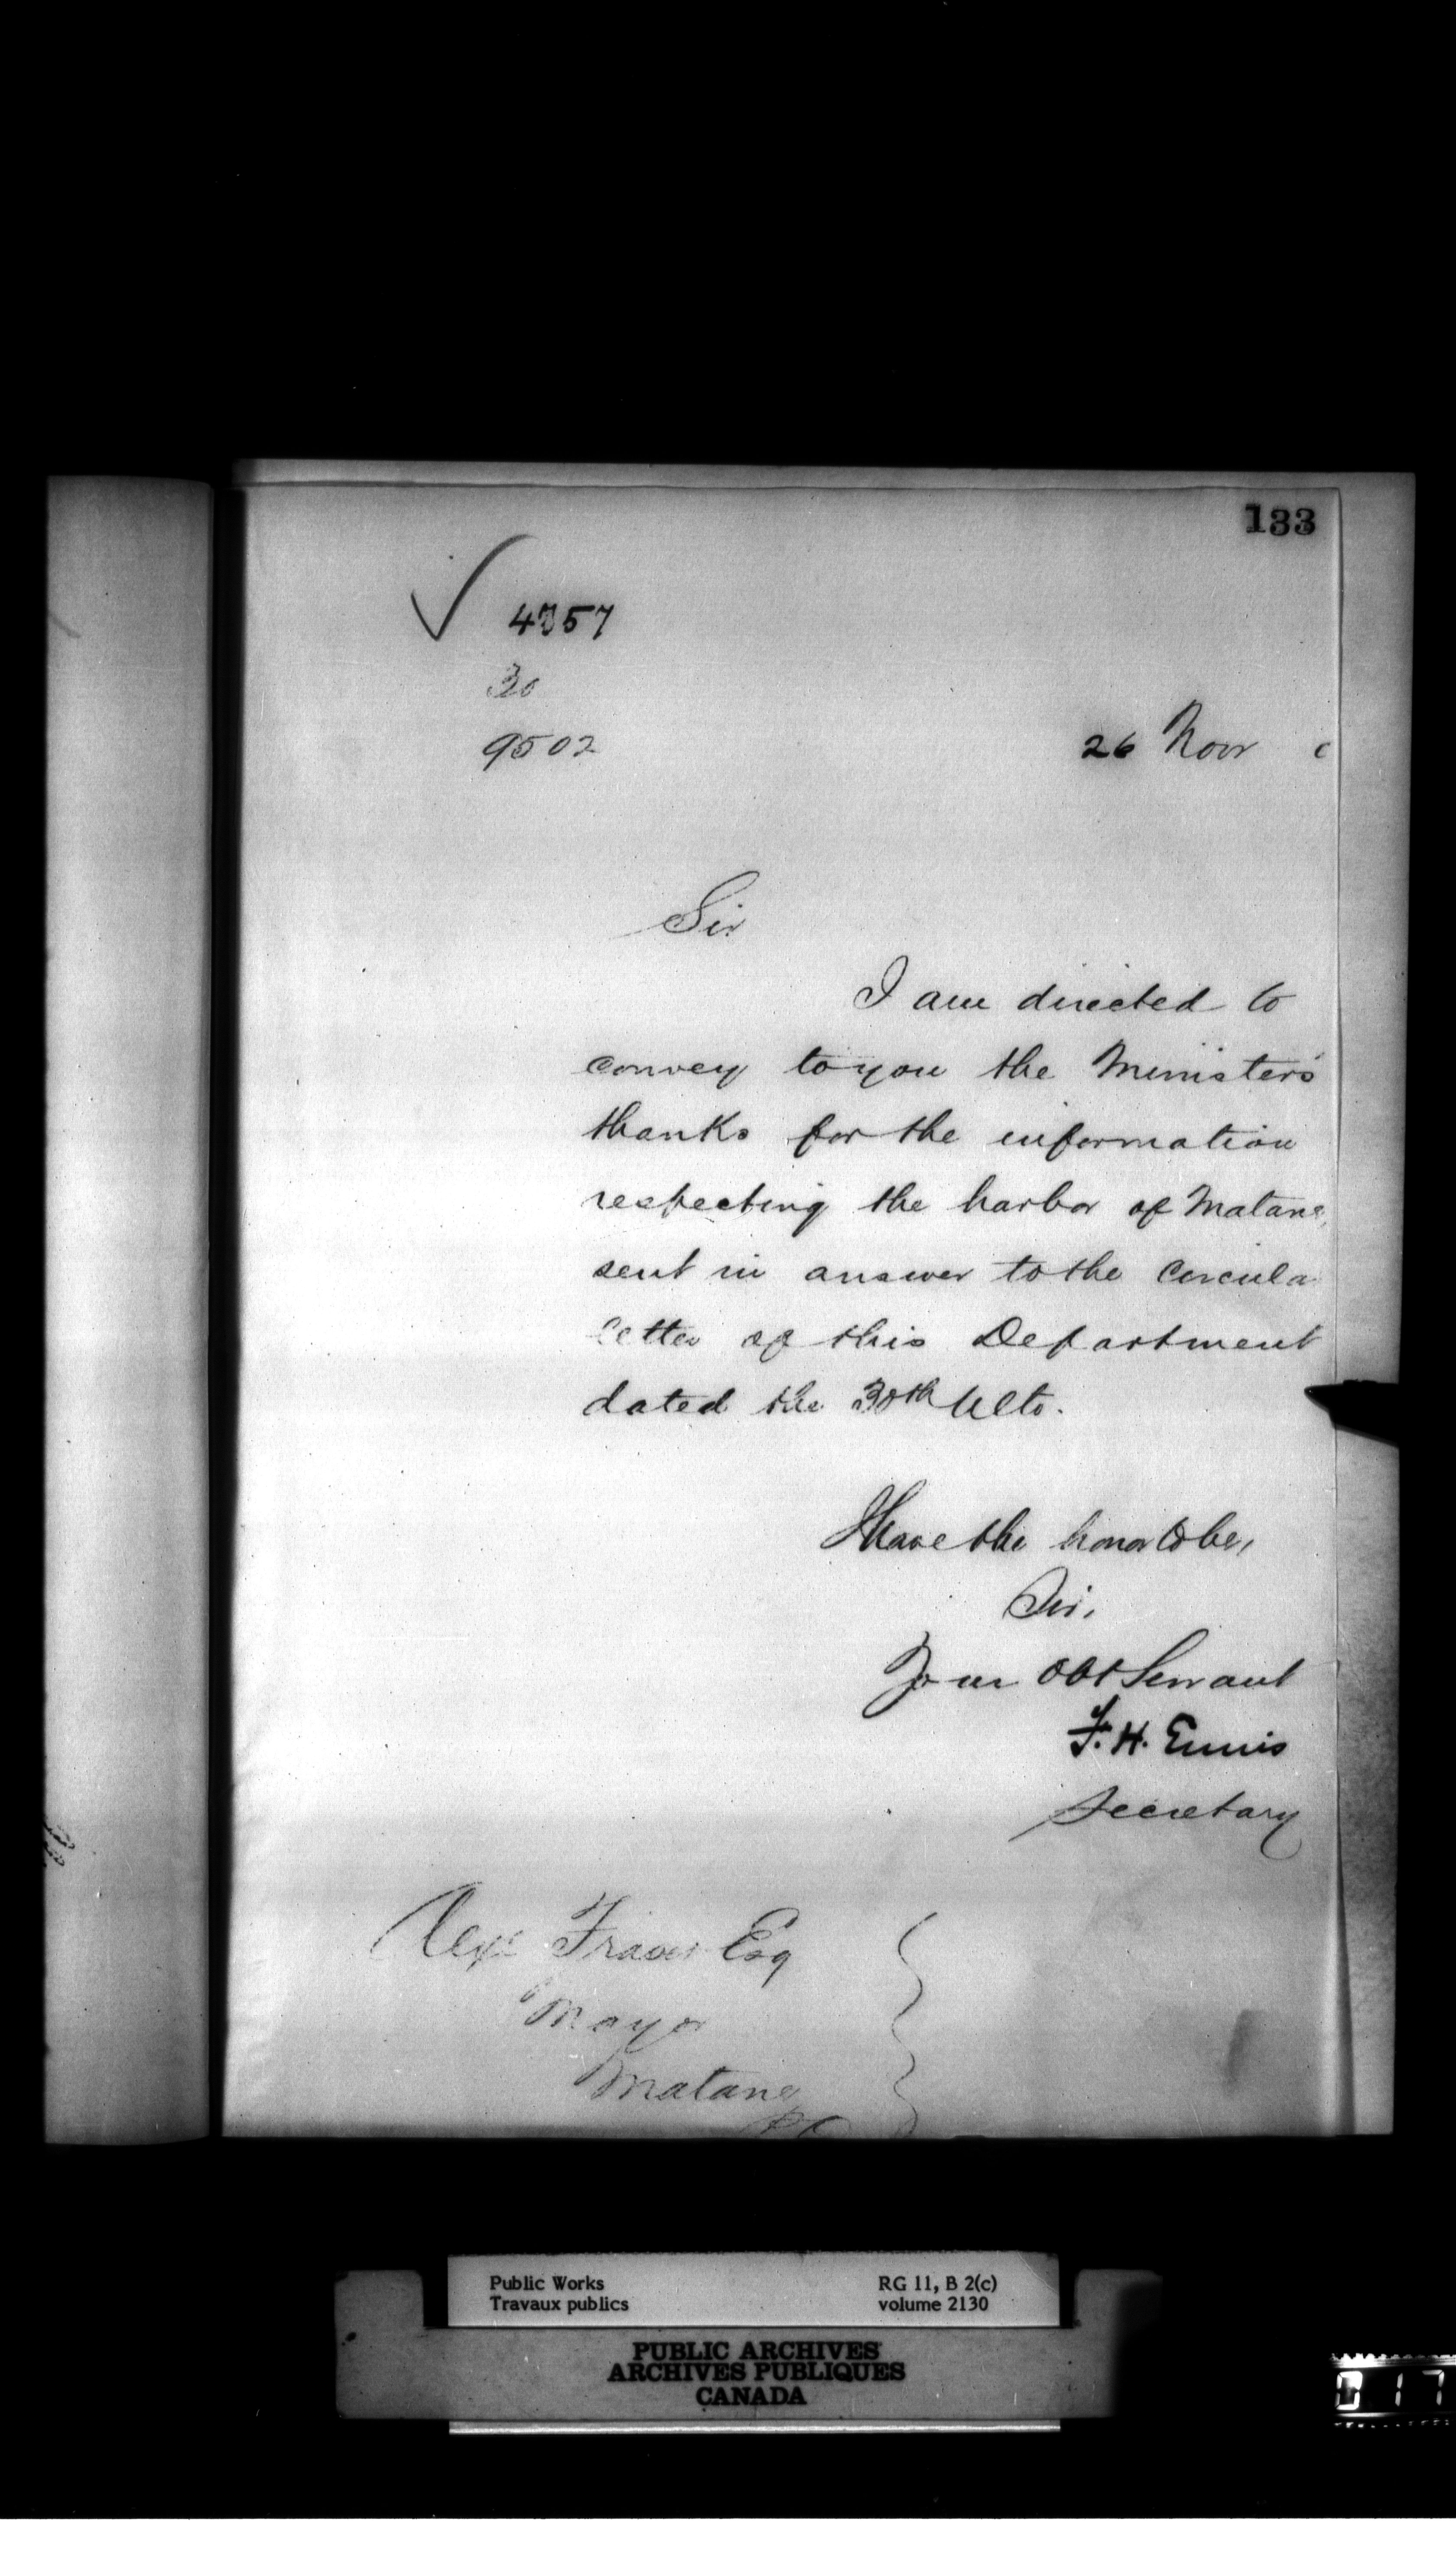 133
4757
30
9502
26 Novr
Sir
I am directed to
convey to you the Minister's
thanks for the information
respecting the harbor of Matane,
sent in answer to the circula
letter of this Department
dated the 30th Ulto.
I have the honor to be,
Sir,
Your Obt Servant
F. H. Ennis
Secretary
Alexr Fraser Esq
Mayor
Matane
Public Works
Travaux publics
RG 11, B 2(c)
volume 2130
PUBLIC ARCHIVES
ARCHIVES PUBLIQUES
CANADA
017